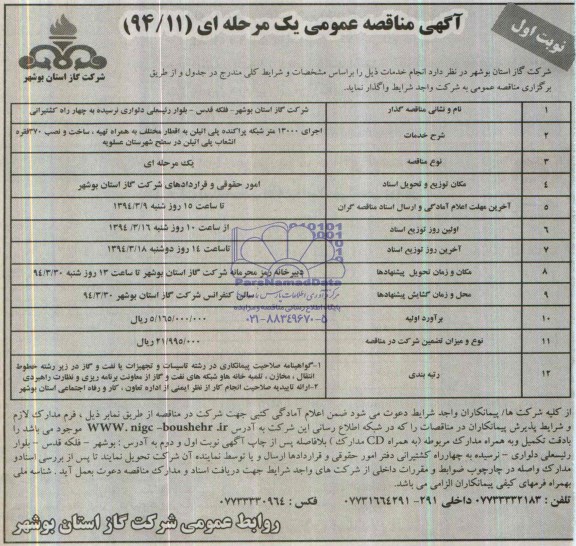 آگهی مناقصه عمومی یک مرحله ای (۹۴/۱۱)
نوبت اول
شرکت گاز استان بوشهر
شرکت گاز استان بوشهر در نظر دارد انجام خدمات ذیل را براساس مشخصات و شرایط کلی مندرج در جدول و از طریق
برگزاری مناقصه عمومی به شرکت واجد شرایط واگذار نماید.
۱ نام و نشانی مناقصه گذار شرکت گاز استان بوشهر- فلکه قدس - بلوار رئیسعلی دلواری نرسیده به چهار راه کشتیرانی
۲ شرح خدمات اجرای ۱۳۰۰۰ متر شبکه پراکنده پلی اتیلن به اقطار مختلف به همراه تهیه ، ساخت و نصب ۳۷۰فقره
انشعاب پلی اتیلن در سطح شهرستان عسلویه
۳ نوع مناقصه یک مرحله ای
۴ مکان توزیع و تحویل اسناد امور حقوقی و قراردادهای شرکت گاز استان بوشهر
۵ آخرین مهلت اعلام آمادگی و ارسال اسناد مناقصه گران تا ساعت ۱۵ روز شنبه ۱۳۹۴/۳/۹
۶ اولین روز توزیع اسناد از ساعت ۱۰ روز شنبه ۱۳۹۴/۳/۱۶
۷ آخرین روز توزیع اسناد تاساعت ۱۴ روز دوشنبه ۱۳۹۴/۳/۱۸
۸ مکان و زمان تحویل پیشنهادها دبیرخانه رمز محرمانه شرکت گاز استان بوشهر تا ساعت ۱۳ روز شنبه ۹۴/۳/۳۰
۹ محل و زمان گشایش پیشنهادها سالن کنفرانس شرکت گاز استان بوشهر ۹۴/۳/۳۰
۱۰ برآورد اولیه ۵/۱۶۵/۰۰۰/۰۰۰ ریال
۱۱ نوع و میزان تضمین شرکت در مناقصه ۲۱/۹۹۵/۰۰۰ ریال
۱۲ رتبه بندی ۱-گواهینامه صلاحیت پیمانکاری در رشته تاسیسات و تجهیزات یا نفت و گاز در زیر رشته خطوط
انتقال ، مخازن ، تلمبه خانه هاو شبکه های نفت و گاز از معاونت برنامه ریزی و نظارت راهبردی
۲-ارائه تاییدیه صلاحیت انجام کار از نظر ایمنی از اداره تعاون ، کار و رفاه اجتماعی استان بوشهر
ParsNamadData
پایگاه اطلاع رسانی مناقصه و مزایده
۰۲۱-۸۸۳۴۹۶۷۰-۵
از کلیه شرکت ها/ پیمانکاران واجد شرایط دعوت می شود ضمن اعلام آمادگی کتبی جهت شرکت در مناقصه از طریق نمابر ذیل ، فرم مدارک لازم
و شرایط پذیرش پیمانکاران در مناقصات را که در شبکه اطلاع رسانی این شرکت به آدرس WWW.nigc-boushehr.ir موجود می باشد را
بادقت تکمیل وبه همراه مدارک مربوطه (به همراه CD مدارک ) بلافاصله پس از چاپ آگهی نوبت اول و دوم به آدرس : بوشهر - فلکه قدس - بلوار
رئیسعلی دلواری - نرسیده به چهارراه کشتیرانی دفتر امور حقوقی و قراردادها ارسال و یا توسط نماینده آن شرکت تحویل نمایند تا پس از بررسی اسنادو
مدارک واصله در چارچوب ضوابط و مقررات داخلی از شرکت های واجد شرایط جهت دریافت اسناد و مدارک مناقصه دعوت بعمل آید . شناسه ملی
بهمراه فرمهای کیفی پیمانکاران الزامی می باشد.
تلفن : ۰۷۷۳۳۳۳۲۱۸۳ داخلی ۲۹۱- ۰۷۷۳۱۶۶۴۲۹۱ فکس : ۰۷۷۳۳۳۳۰۹۶۴
روابط عمومی شرکت گاز استان بوشهر